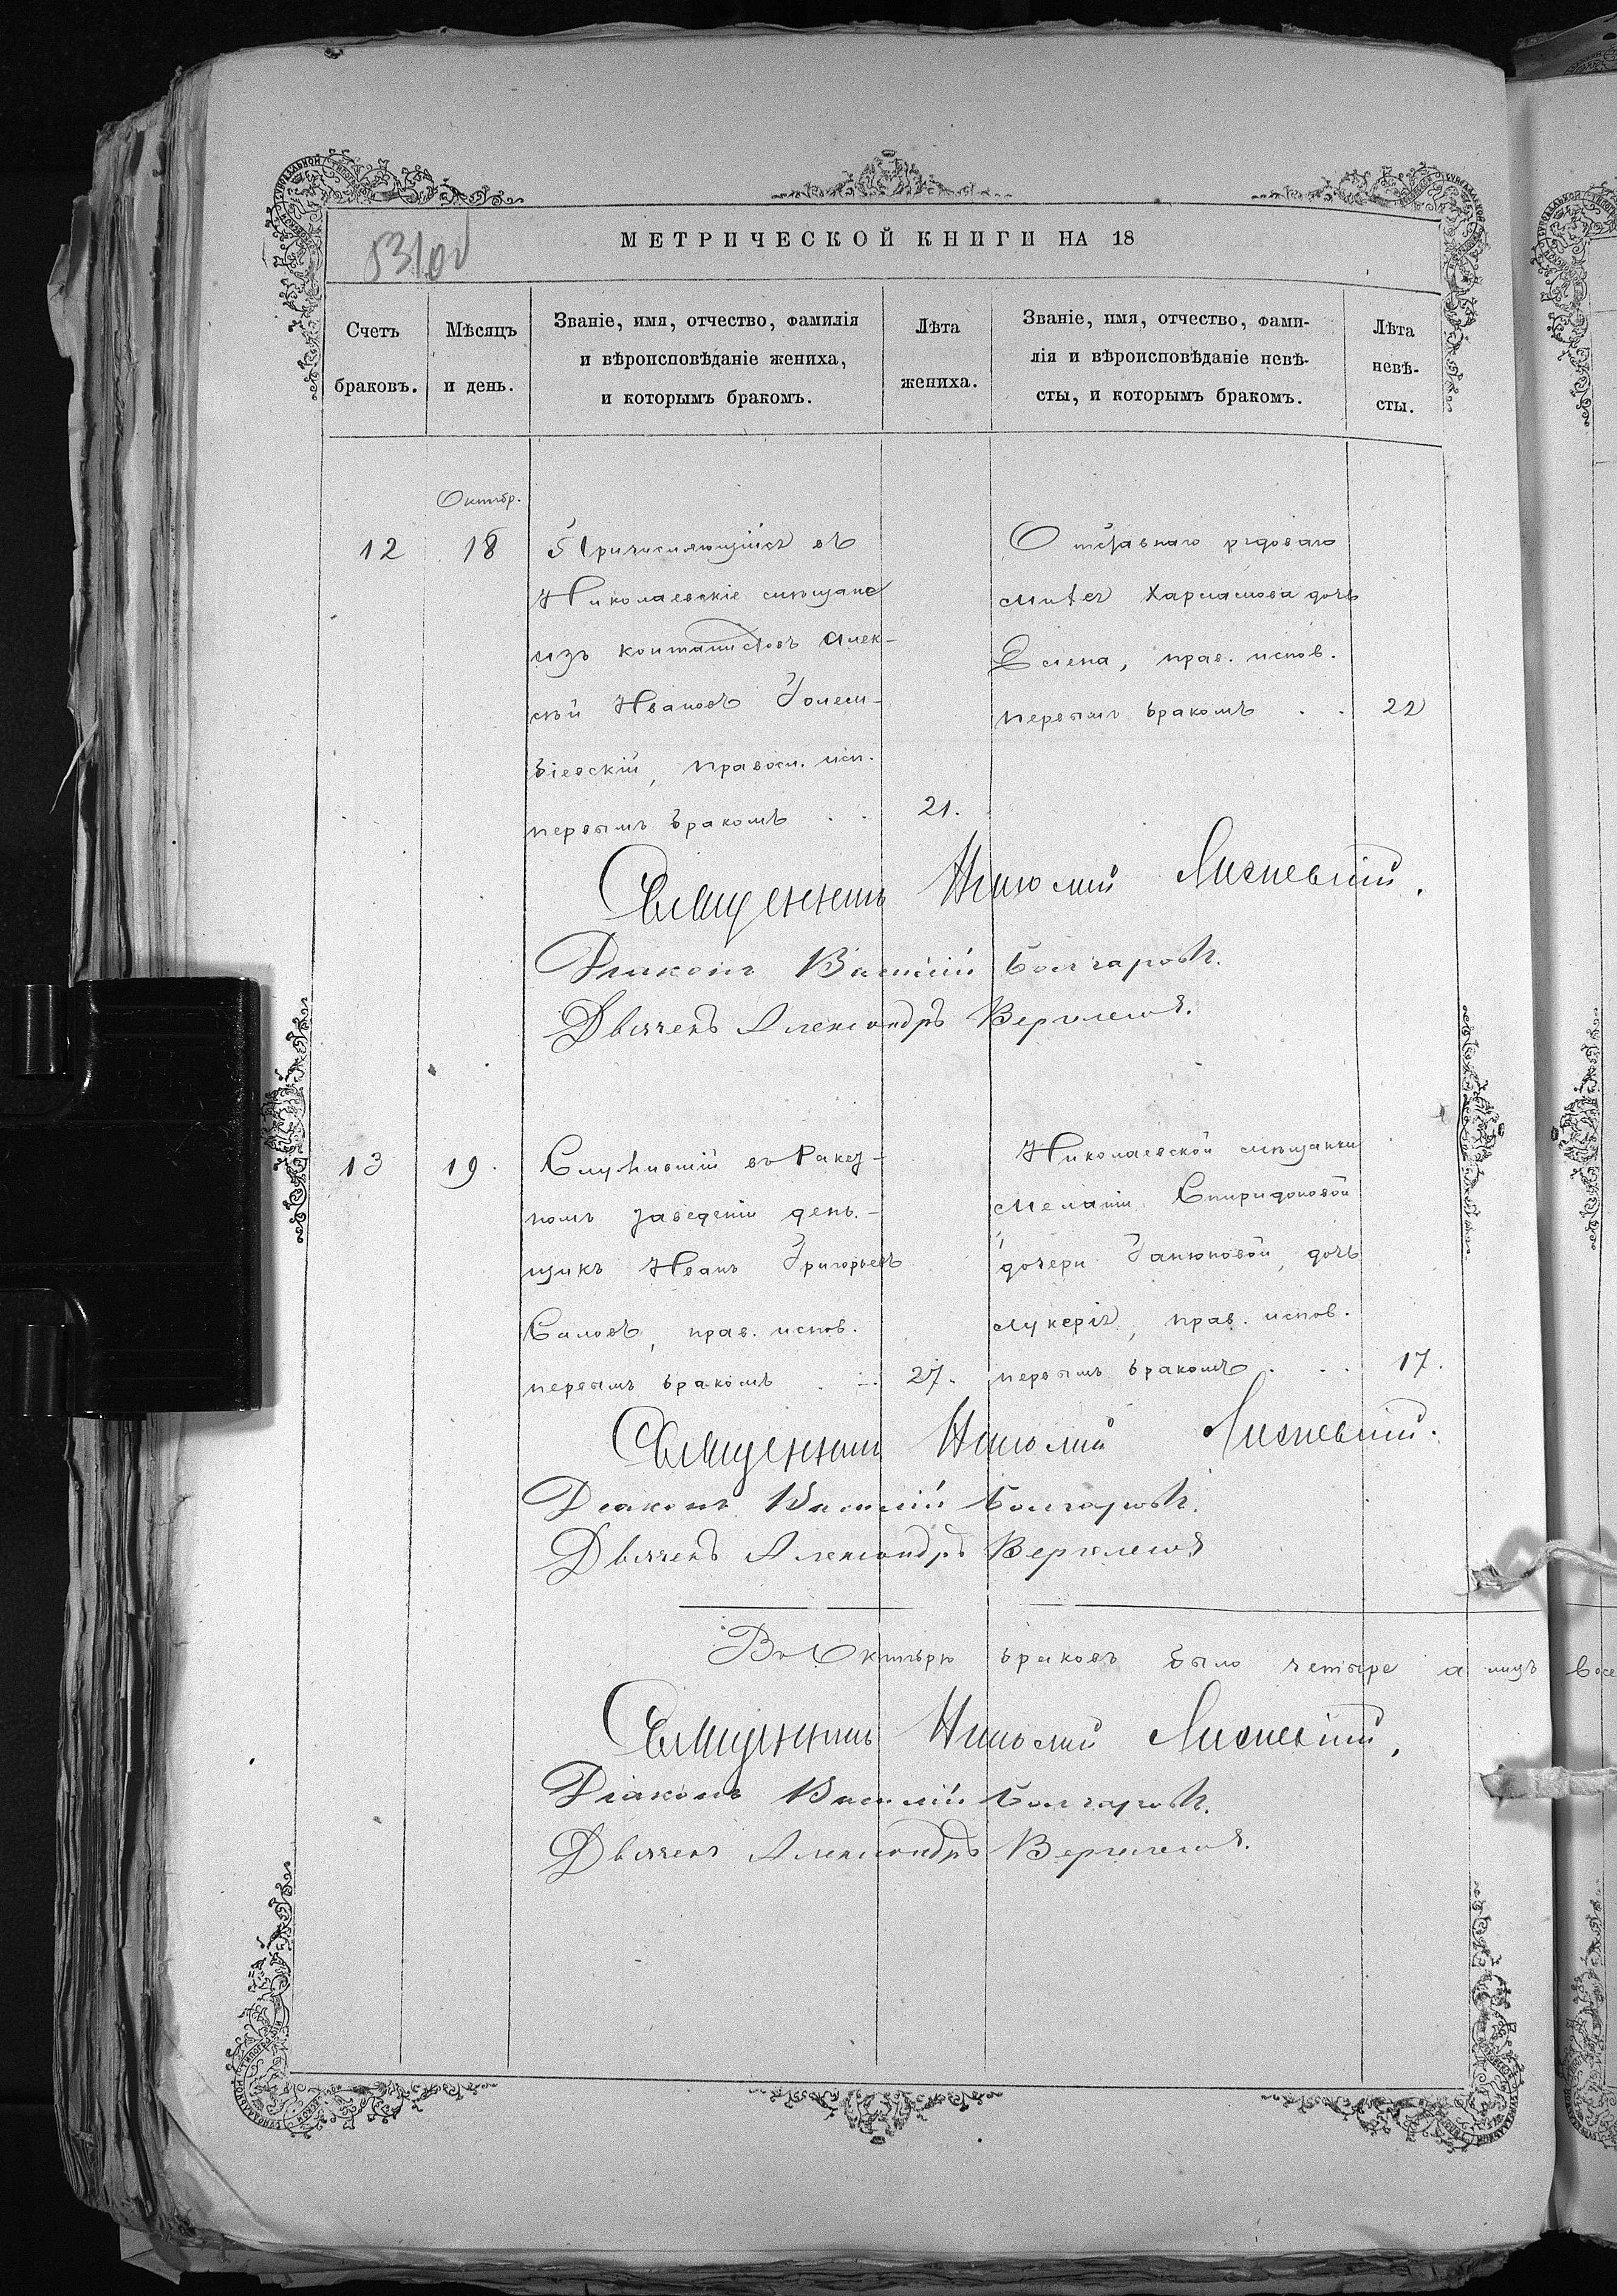 МЕТРИЧЕСКОЙ КНИГИ НА 18
531об
Счетъ браковъ.
Мѣсяцъ и день.
Званіе, имя, отчество, фамилія
и вѣроисповѣданіе жениха,
и которымъ бракомъ.
Лѣта жениха.
Званіе, имя, отчество, фами-
лія и вѣроисповѣданіе невѣ-
сты, и которымъ бракомъ.
Лѣта невѣ-
сты.
Октябр.
12
18
Причисляющійся въ
Николаевскіе мѣщане
изъ контонистовъ Алек-
сѣй Ивановъ Голем-
біевскій, правосл. исп.
первымъ бракомъ . .
21.
Отставнаго рядоваго
Харлампова дочь
Елена, прав. испов.
первымъ бракомъ . .
22
Священникъ Николай
Діаконъ Василій Болгаровъ.
Дьячекъ Александръ
13
19.
Служившій въ Ракет-
номъ заведеніи ден-
щикъ Иванъ Григорьевъ
Саловъ, прав. испов.
первымъ бракомъ . .
27.
Николаевской мѣщанки
Меланіи Спиридоновой
дочери Ганюковой, дочь
Лукерія, прав. испов.
первымъ бракомъ . . .
17.
Священникъ Николай
Діаконъ Василій Болгаровъ.
Дьячекъ Александръ
Въ Октябрѣ браковъ было четыре а лицъ
Священникъ Николай
Діаконъ Василій Болгаровъ.
Дьячекъ Александръ